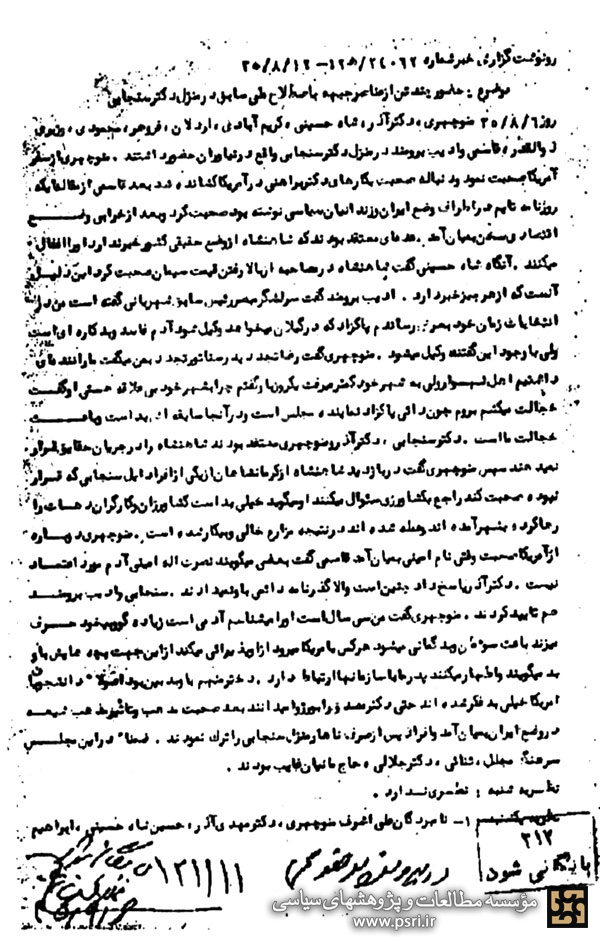 رونوشت گزارش خبر شماره ۱۲۵/۲۴۰۶۲ – ۳۵/۸/۱۲
موضوع : حضور چند تن از عناصر جبهه باصطلاح ملی سابق در منزل دکتر سنجابی
روز ۳۵/۸/۶ منوچهری ، دکتر آذر ، شاه حسینی ، کریم آبادی ، اردلان ، فروهر ، محمودی ، وزیری
ذوالقدر ، قاسمی و ادیب برومند در منزل دکتر سنجابی واقع در نیاوران حضور داشتند . منوچهری از سفر
آمریکا صحبت نمود و دنباله صحبت بکارهای دکتر براهنی در آمریکا کشانده شد بعد قاسمی از مقاله ایکه
روزنامه تایم در اطراف وضع ایران و زندانیان سیاسی نوشته بود صحبت کرد و بعد از خرابی وضع
اقتصادی سخن بمیان آمد . عده ای معتقد بودند که شاهنشاه از وضع حقیقی کشور خبر ندارد او را اغفال
میکنند . آنگاه شاه حسینی گفت شاهنشاه در مصاحبه از بالا رفتن قیمت سیمان صحبت کرد این دلیل
آنست که از هر چیز خبر دارد . ادیب برومند گفت سرلشگر مبصر رئیس سابق شهربانی گفته است من در
انتخابات زمان خود بعرض رساندم پاکزاد که در گیلان میخواهد وکیل شود آدم فاسد و بدکاره ای است
ولی با وجود این گفتند وکیل میشود . منوچهری گفت رضا تجدد پدر سناتور تجدد بمن میگفت ما راننده ای
داشتیم اهل شهسوار ولی به شهر خود کمتر میرفت یکروز باو گفتم چرا بشهر خود بی علاقه هستی او گفت
خجالت میکشم بروم چون دائی پاکزاد نماینده مجلس است و در آنجا سابقه اش بد است و باعث
خجالت ما است . دکتر سنجابی ، دکتر آذر و منوچهری معتقد بودند شاهنشاه را در جریان حقایق قرار
نمیدهند سپس منوچهری گفت در بازدید شاهنشاه از کرمانشاهان از یکی از افراد ایل سنجابی که قرار
نبوده صحبت کند راجع بکشاورزی سئوال میکنند او میگوید خیلی بد است کشاورزان و کارگران دهات را
رها کرده بشهر آمده اند و عمله شده اند در نتیجه مزارع خالی و بیکار شده است . منوچهری دوباره
از آمریکا صحبت وقتی نام امینی بمیان آمد قاسمی گفت بعضی میگویند نصرت اله امینی آدم مورد اعتماد
نیست . دکتر آذر پاسخ داد چنین است والا گذرنامه دائمی باو نمیدادند . سنجابی و ادیب برومند
هم تایید کردند . منوچهری گفت من سی سال است او را میشناسم آدمی است زیاده گو و بیخود حرف
میزند باعث سوءظن و بدگمانی میشود هر کس بامریکا میرود از او پذیرائی میکند از این جهت بچه هایش باو
بد میگویند و اظهار میکنند پدر ما با سازمانها ارتباط دارد . دخترش هم باو بدبین بود اصولا دانشجویان
امریکا خیلی بد فکر شده اند حتی دکتر مصدق را بورژوا میدانند بعد صحبت مذهب و تاثیر مذهب شیعه
در وضع ایران بمیان آمد و افراد پس از صرف ناهار منزل سنجابی را ترک نمودند . ضمناً در این مجلس
سرهنگ مجللی ، ثنائی ، دکتر جلالی ، حاج مانیان غایب بودند .
نظریه شنبه : نظری ندارد .
نظریه یکشنبه : ۱- نامبردگان علی اشرف منوچهری ، دکتر مهدی آذر ، حسین شاه حسینی ، ابراهیم
۳۱۲
بایگانی شود
۱۲۱/۱۱
مؤسسه مطالعات و پژوهشهای سیاسی
www.psri.ir